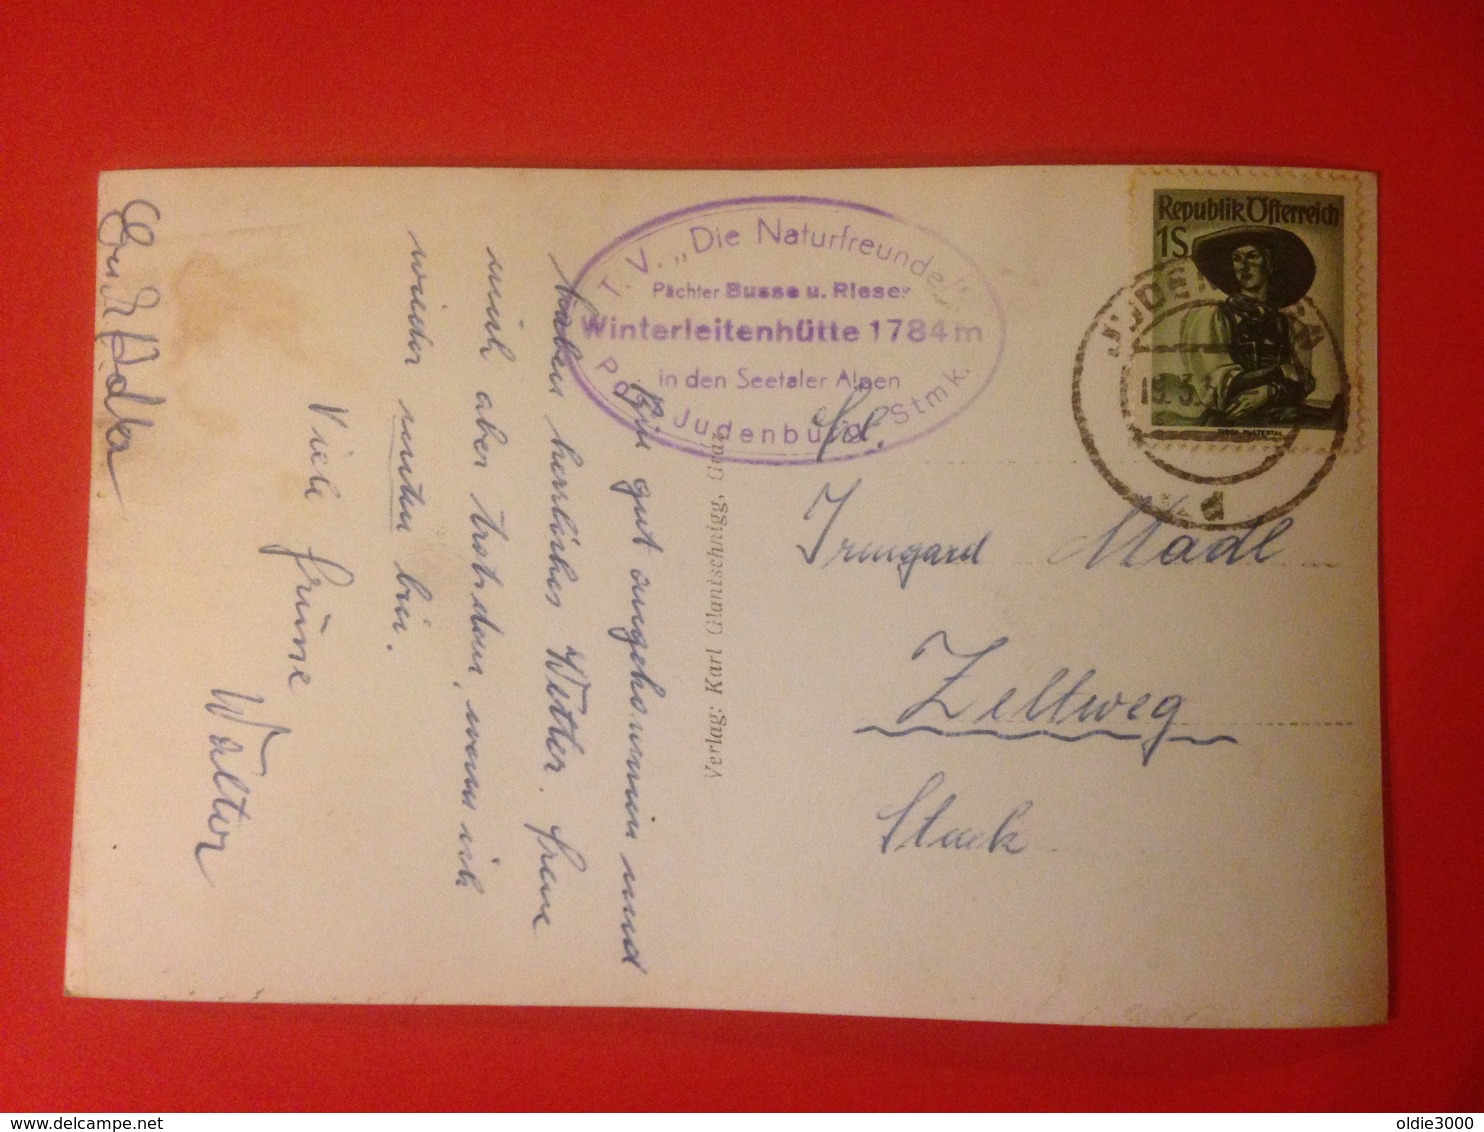 T. V. „Die Naturfreunde"
Pächter Busse u. Rieser
Winterleitenhütte 1784 m
in den Seetaler Alpen
Post Judenburg, Stmk.
Republik Österreich
1S
JUDENBURG
19. 3. 5
d
Bin gut angekommen und
haben herrliches Wetter. Freue
mich aber trotzdem, wenn ich
wieder unten bin.
Viele Grüsse
Walter
Adla
Verlag: Karl Glanischnigg, Graz
Frl.
Irmgard Madl
Zeltweg
oldie3000
www.delcampe.net